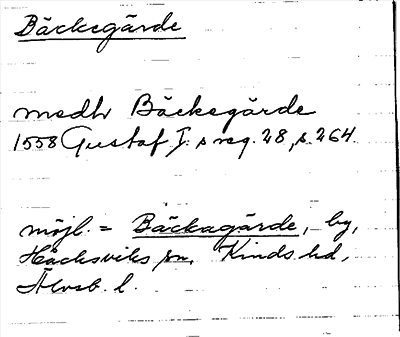 Bäcksgärde
medh Bäckegärde
1558 Gustaf I:s reg. 28, s. 264.
möjl. = Bäckagärde, by,
Håcksviks sn, Kinds hd,
Älvsb. l.